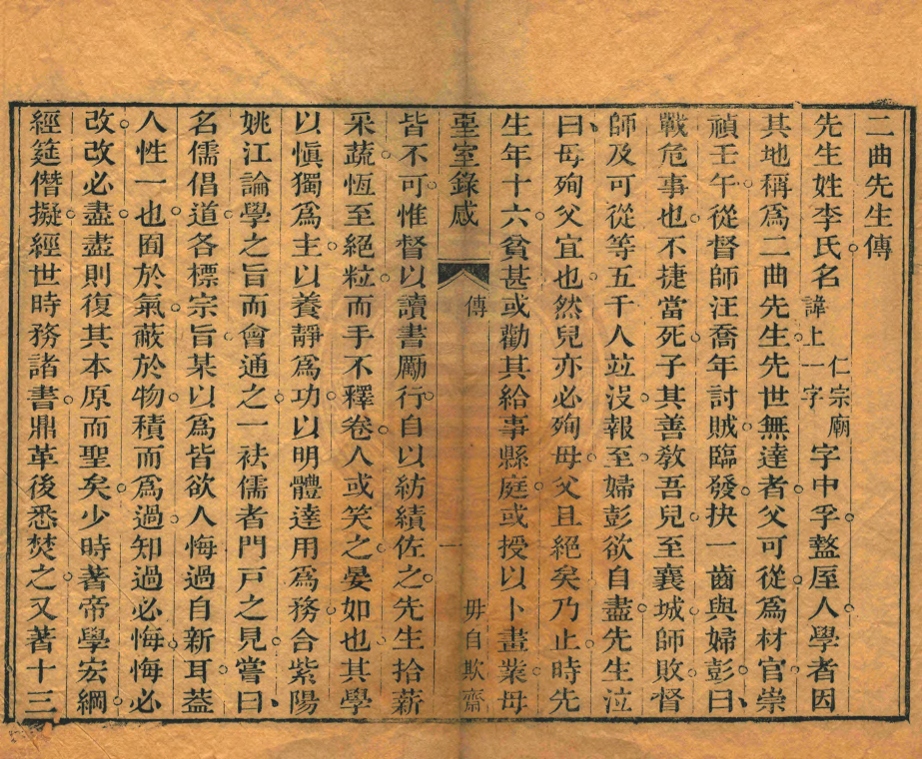 二曲先生傳
先生姓李氏名諱上一字仁宗廟字中孚盩厔人學者因
其地稱爲二曲先生先世無達者父可從爲材官崇
禎壬午從督師汪喬年討賊臨發抉一齒與婦彭曰
戰危事也不捷當死子其善敎吾兒至襄城師敗督
師及可從等五千人竝沒報至婦彭欲自盡先生泣
曰母殉父宜也然兒亦必殉母父且絕矣乃止時先
生年十六貧甚或勸其給事縣庭或授以卜畫業母
堊室錄感
傳
一
毋自欺齋
皆不可惟督以讀書勵行自以紡績佐之先生拾薪
采蔬恆至絕粒而手不釋卷人或笑之晏如也其學
以愼獨爲主以養靜爲功以明體達用爲務合紫陽
姚江論學之旨而會通之一袪儒者門戶之見嘗曰
名儒倡道各標宗旨某以爲皆欲人悔過自新耳葢
人性一也囿於氣蔽於物積而爲過知過必悔悔必
改改必盡盡則復其本原而聖矣少時著帝學宏綱
經筵僭擬經世時務諸書鼎革後悉焚之又著十三